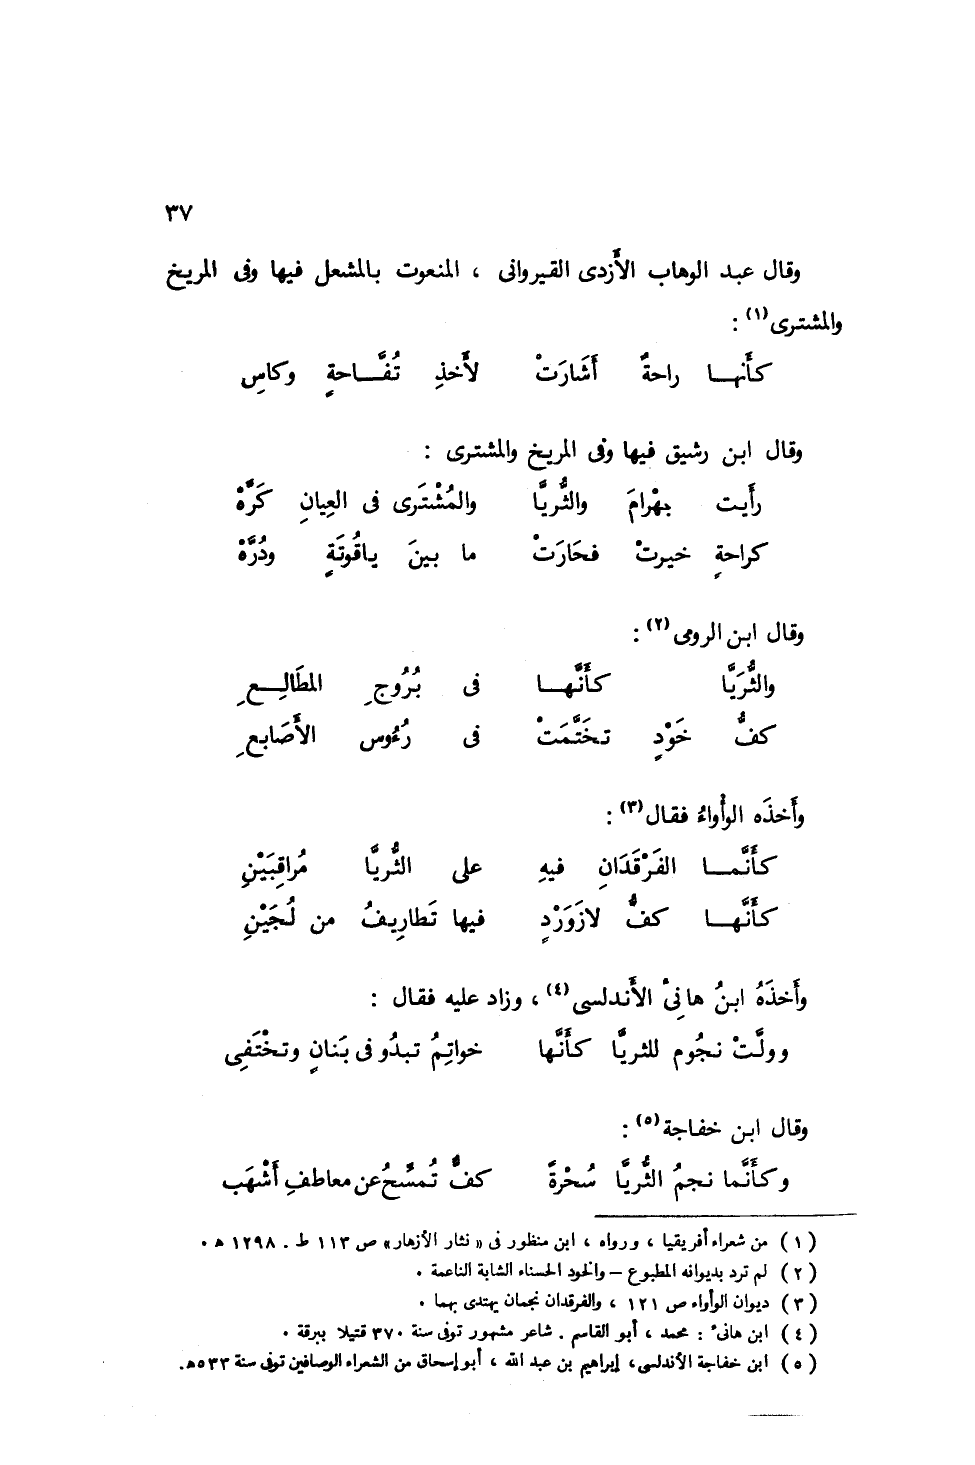 ٣٧
وقال عبد الوهاب الأَزدى القيروانى ، المنعوت بالمشعل فيها وفى المريخ
والمشترى(١) :
كأَنهـا راحةٌ أَشَارَتْ لأَخذِ تُفَّـاحةٍ وكاسِ
وقال ابن رشيق فيها وفى المريخ والمشترى :
رأَيت بهْرامَ والثُّريَّا والمُشْتَرى فى العِيانِ كَرَّهْ
كراحةٍ خيرتْ فحَارَتْ ما بينَ ياقُوتَةٍ ودُرَّهْ
وقال ابن الرومى(٢) :
والثُّرَيَّا كأَنَّهـا فى بُرُوجِ المطَالِـعِ
كفُّ خَوْدٍ تخَتَّمَتْ فى رُءُوس الأَصَابعِ
وأَخذَه الوأْواءُ فقال(٣) :
كأَنَّمـا الفَرْقَدَانِ فيهِ على الثُّريَّا مُراقِبَيْنِ
كأَنَّهـا كفُّ لازَوَرْدٍ فيها تَطارِيفُ من لُجَيْنِ
وأَخذَهُ ابنُ هانىْ الأَندلسى(٤) ، وزاد عليه فقال :
وولَّتْ نجُوم للثريَّا كأَنَّها خواتِمُ تبدُو فى بَنانٍ وتخْتَفِى
وقال ابن خفاجة(٥) :
وكأَنَّما نجمُ الثُّريَّا سُحْرةً كفٌّ تُمسِّحُ عن معاطفِ أَشْهَب
(١) من شعراء أفريقيا ، ورواه ، ابن منظور فى « نثار الأزهار» ص ١١٣ ط . ١٢٩٨ ه .
(٢) لم ترد بديوانه المطبوع – والخود الحسناء الشابة الناعمة .
(٣) ديوان الوأواء ص ١٢١ ، والفرقدان نجمان يهتدى بهما .
(٤) ابن هانىء : محمد ، أبو القاسم . شاعر مشهور توفى سنة ٣٧٠ قتيلا ببرقة .
(٥) ابن خفاجة الأندلسى، إبراهيم بن عبد الله ، أبو إسحاق من الشعراء الوصافين توفى سنة ٥٣٣ه.